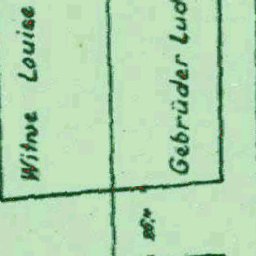 Witwe Louise
Gebrüder Lud